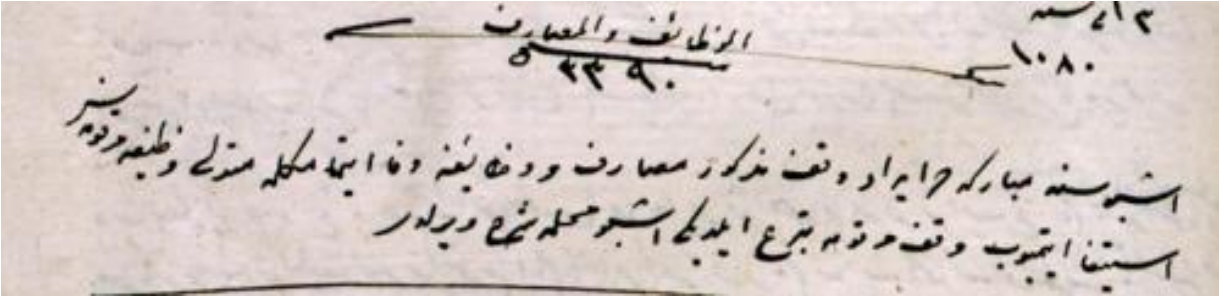 الوظائف والمصارف
٣٣٩٠
١٠٨٠
اشبو سنه مباركه ده ايراد وقف مذكور مصارف و وظائفنه وفا ايتمامكله متولى وظيفه مرقومه سن
استيفا ايتميوب وقف مرقومه تبرع ايلديكى اشبو محله شرح ويرلدى